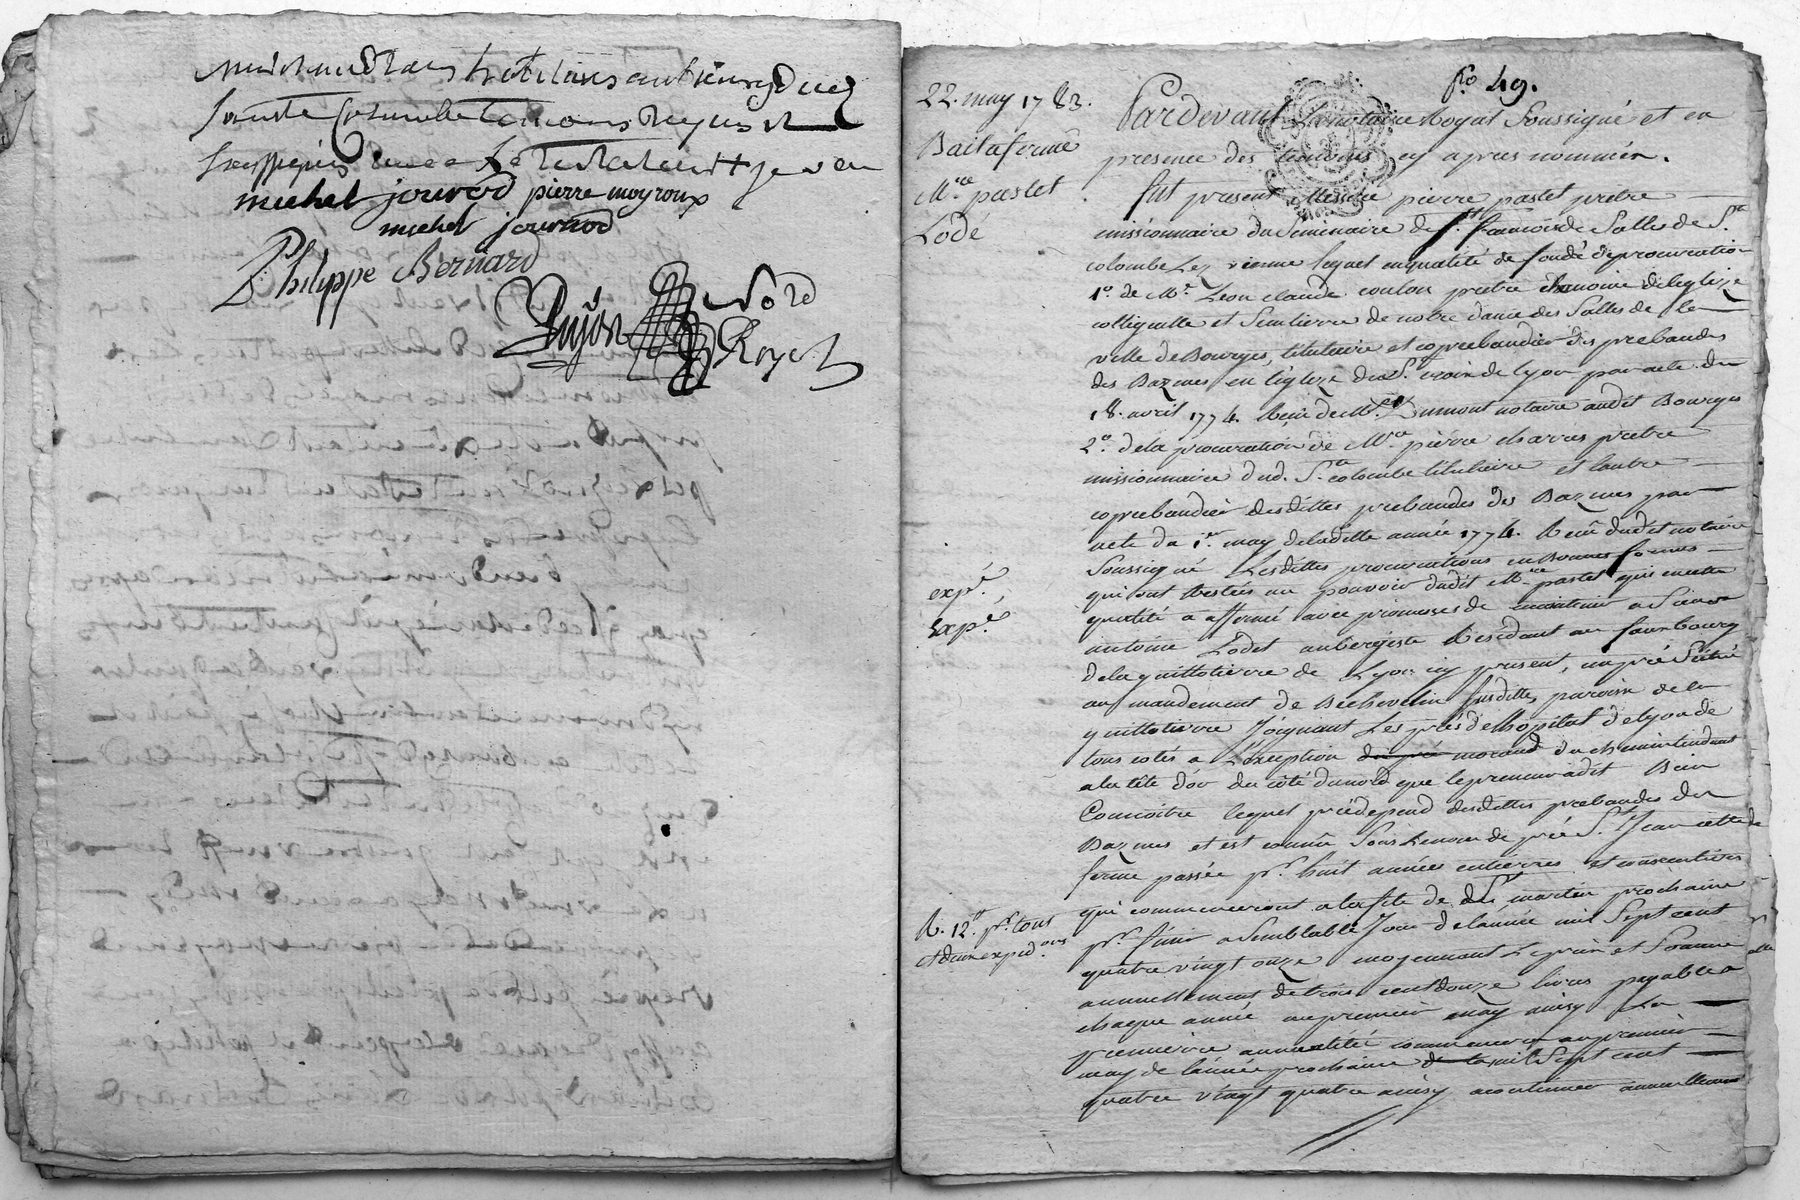 michel jouvrod pierre moyroux
michel jouvrod
Philippe Bernard
Dujon
Royet
fo. 49.
22. may 1783.
Bail a ferme
Mre. pastet
Lodé
expé.
Expé.
R. 12s. pr. tous
et deux expedons.
Pardevant Le notaire Royal Soussigné et en
presence des temoins cy apres nommés.
fut present Messire pierre pastet pretre
missionnaire du Seminaire de St. francois de Salles de Ste.
colombe Lez vienne lequel en qualité de fondé de procuration
1o. de Mr. Leon claude coulon pretre chanoine de leglize
collegialle et Seculierre de notre dame des Salles de la
ville de Bourges, titulaire et coprebandier des prebandes
des Bazmes en l'eglize de Ste. croix de lyon par acte du
18. avril 1774. Recu de Me. Dumont notaire audit Bourges
2o. de la procuration de Mre. pierre charres pretre
missionnaire dud. Ste. colombe titulaire et lautre
coprebandier desdittes prebandes des Bazmes par
acte du 1er. may de laditte année 1774. Recu dudit notaire
Soussigné Lesdittes procurations en Bonnes formes
qui ont Restées au pouvoir dudit Mre. pastet qui en cette
qualité a affermé avec promesses de maintenir a Sieur
antoine Lodet aubergiste Residant au faux bourg
de la guillotierre de Lyon cy present, un pré Scitué
au mandement de Bechevelin Susditte parroisse de la
guillotierre Joignant Les prés de lhopital de lyon de
tous cotés a L'exception du pré morand du chemin tendant
a la tête d'or du côté du nord que le preneur a dit Bien
Connoitre lequel pré depend desdittes prebandes des
Bazmes et est connû Sous le nom de pré St. Jean cette
ferme passée pr. huit années entierres et consecutives
qui commenceront a la fete de St. martin prochaine
pr. finir a Semblable Jour de l'année mil Sept cent
quatre vingt onze moyennant Le prix et Somme
annuellement de trois cent douze livres payable
chaque année au premier may ainsy La
premierre annuallité commencera au premier
may de l'année prochaine mil Sept cent
quatre vingt quatre ainsy a continuer annuellement